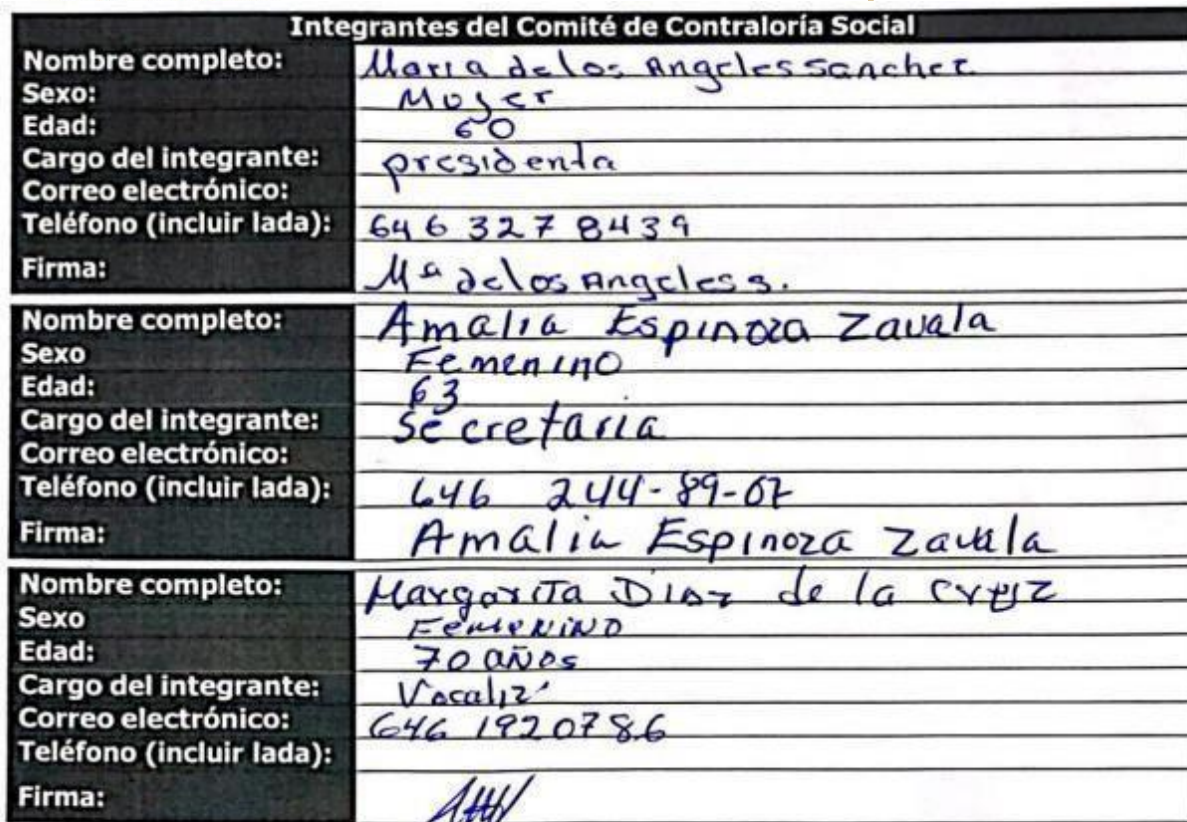 Integrantes del Comité de Contraloría Social
Nombre completo: Maria de los Angeles sanchez
Sexo: Mujer
Edad: 60
Cargo del integrante: presidenta
Correo electrónico:
Teléfono (incluir lada): 646 327 8439
Firma: Mª de los Angeles s.
Nombre completo: Amalia Espinoza Zavala
Sexo Femenino
Edad: 63
Cargo del integrante: Secretaria
Correo electrónico:
Teléfono (incluir lada): 646 244-89-07
Firma: Amalia Espinoza Zavala
Nombre completo: Margarita Diaz de la cruz
Sexo Femenino
Edad: 70 años
Cargo del integrante:
Correo electrónico: 646 1920786
Teléfono (incluir lada):
Firma: